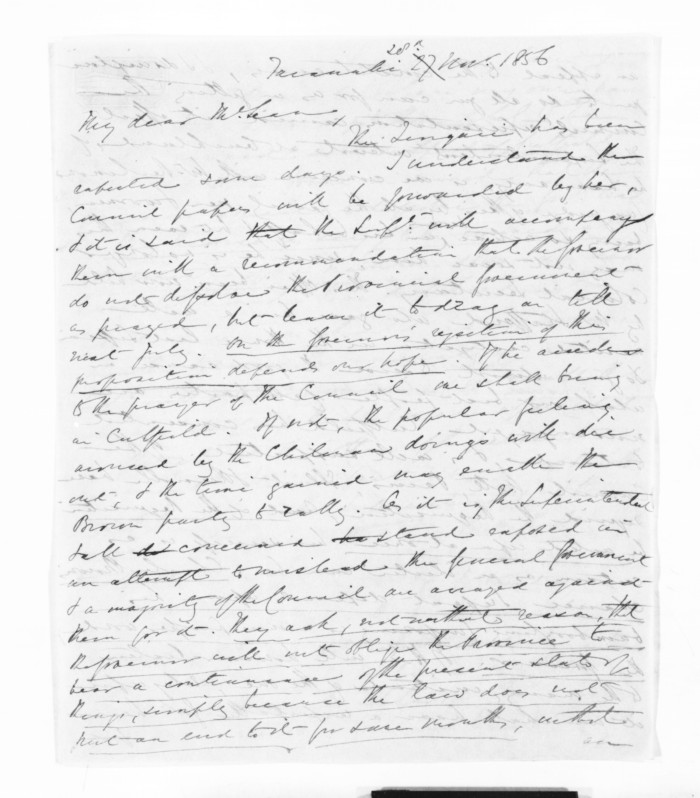 Taranaki 28th Novr. 1856
My dear McLean,
The Zingari has been
expected some days. I understand the
Council papers will be forwarded by her,
& it is said that the Supt. will accompany
them with a recommendation that the Governor
do not dissolve the Provincial Government
as prayed, but leave it to drag on till
next July. On the Governor's rejection of this
proposition depends our hope. If he accedes
to the prayer of the Council we shall bring
in Cutfield. If not, the popular feeling
aroused by the Chilman doings will die
out, & the time gained may enable the
Brown party to rally. As it is, the Superintendent
& all concerned stand exposed in
an attempt to mislead the General Government
& a majority of the Council are arrayed against
them for it. They ask, not without reason, that
the Governor will not oblige the Province to
bear a continuance of the present state of
things, simply because the law does not
put an end to it for some months, without